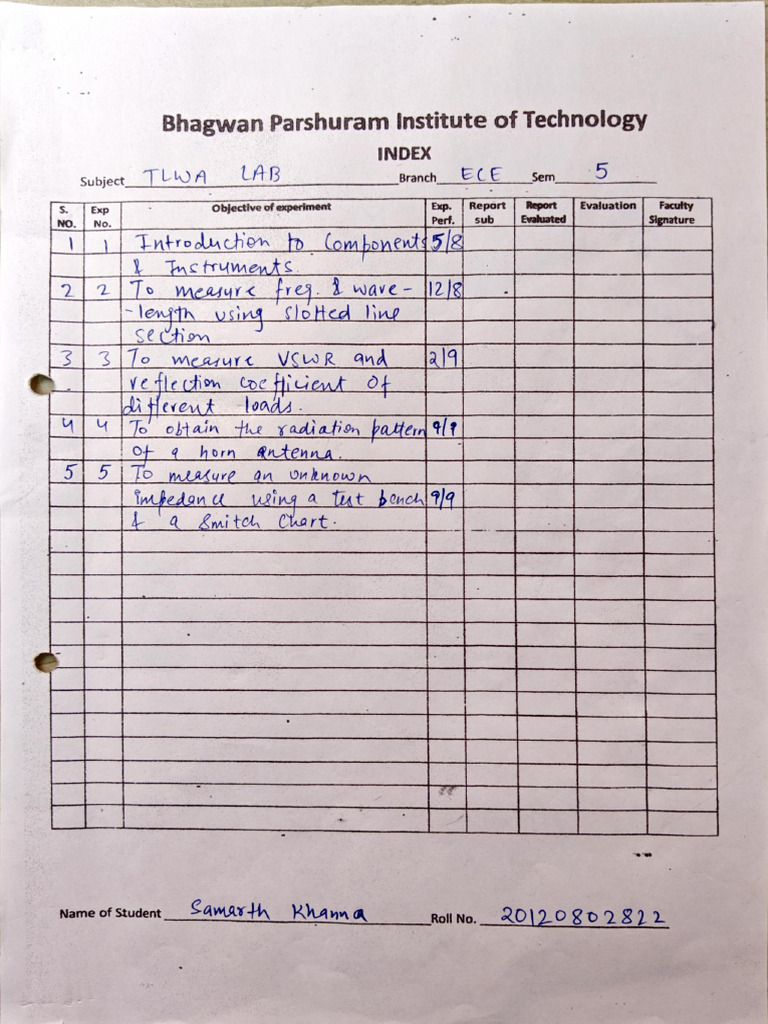 Bhagwan Parshuram Institute of Technology
INDEX
Subject TLWA LAB Branch ECE Sem 5
S. NO. Exp No. Objective of experiment Exp. Perf. Report sub Report Evaluated Evaluation Faculty Signature
1 1 Introduction to Components 5/8
& Instruments.
2 2 To measure freq. & wave- 12/8
-length using slotted line
section
3 3 To measure VSWR and 2/9
reflection coefficient of
different loads.
4 4 To obtain the radiation pattern 9/9
of a horn antenna.
5 5 To measure an unknown
impedance using a test bench 9/9
& a Smitch Chart.
Name of Student Samarth Khanna Roll No. 20120802822